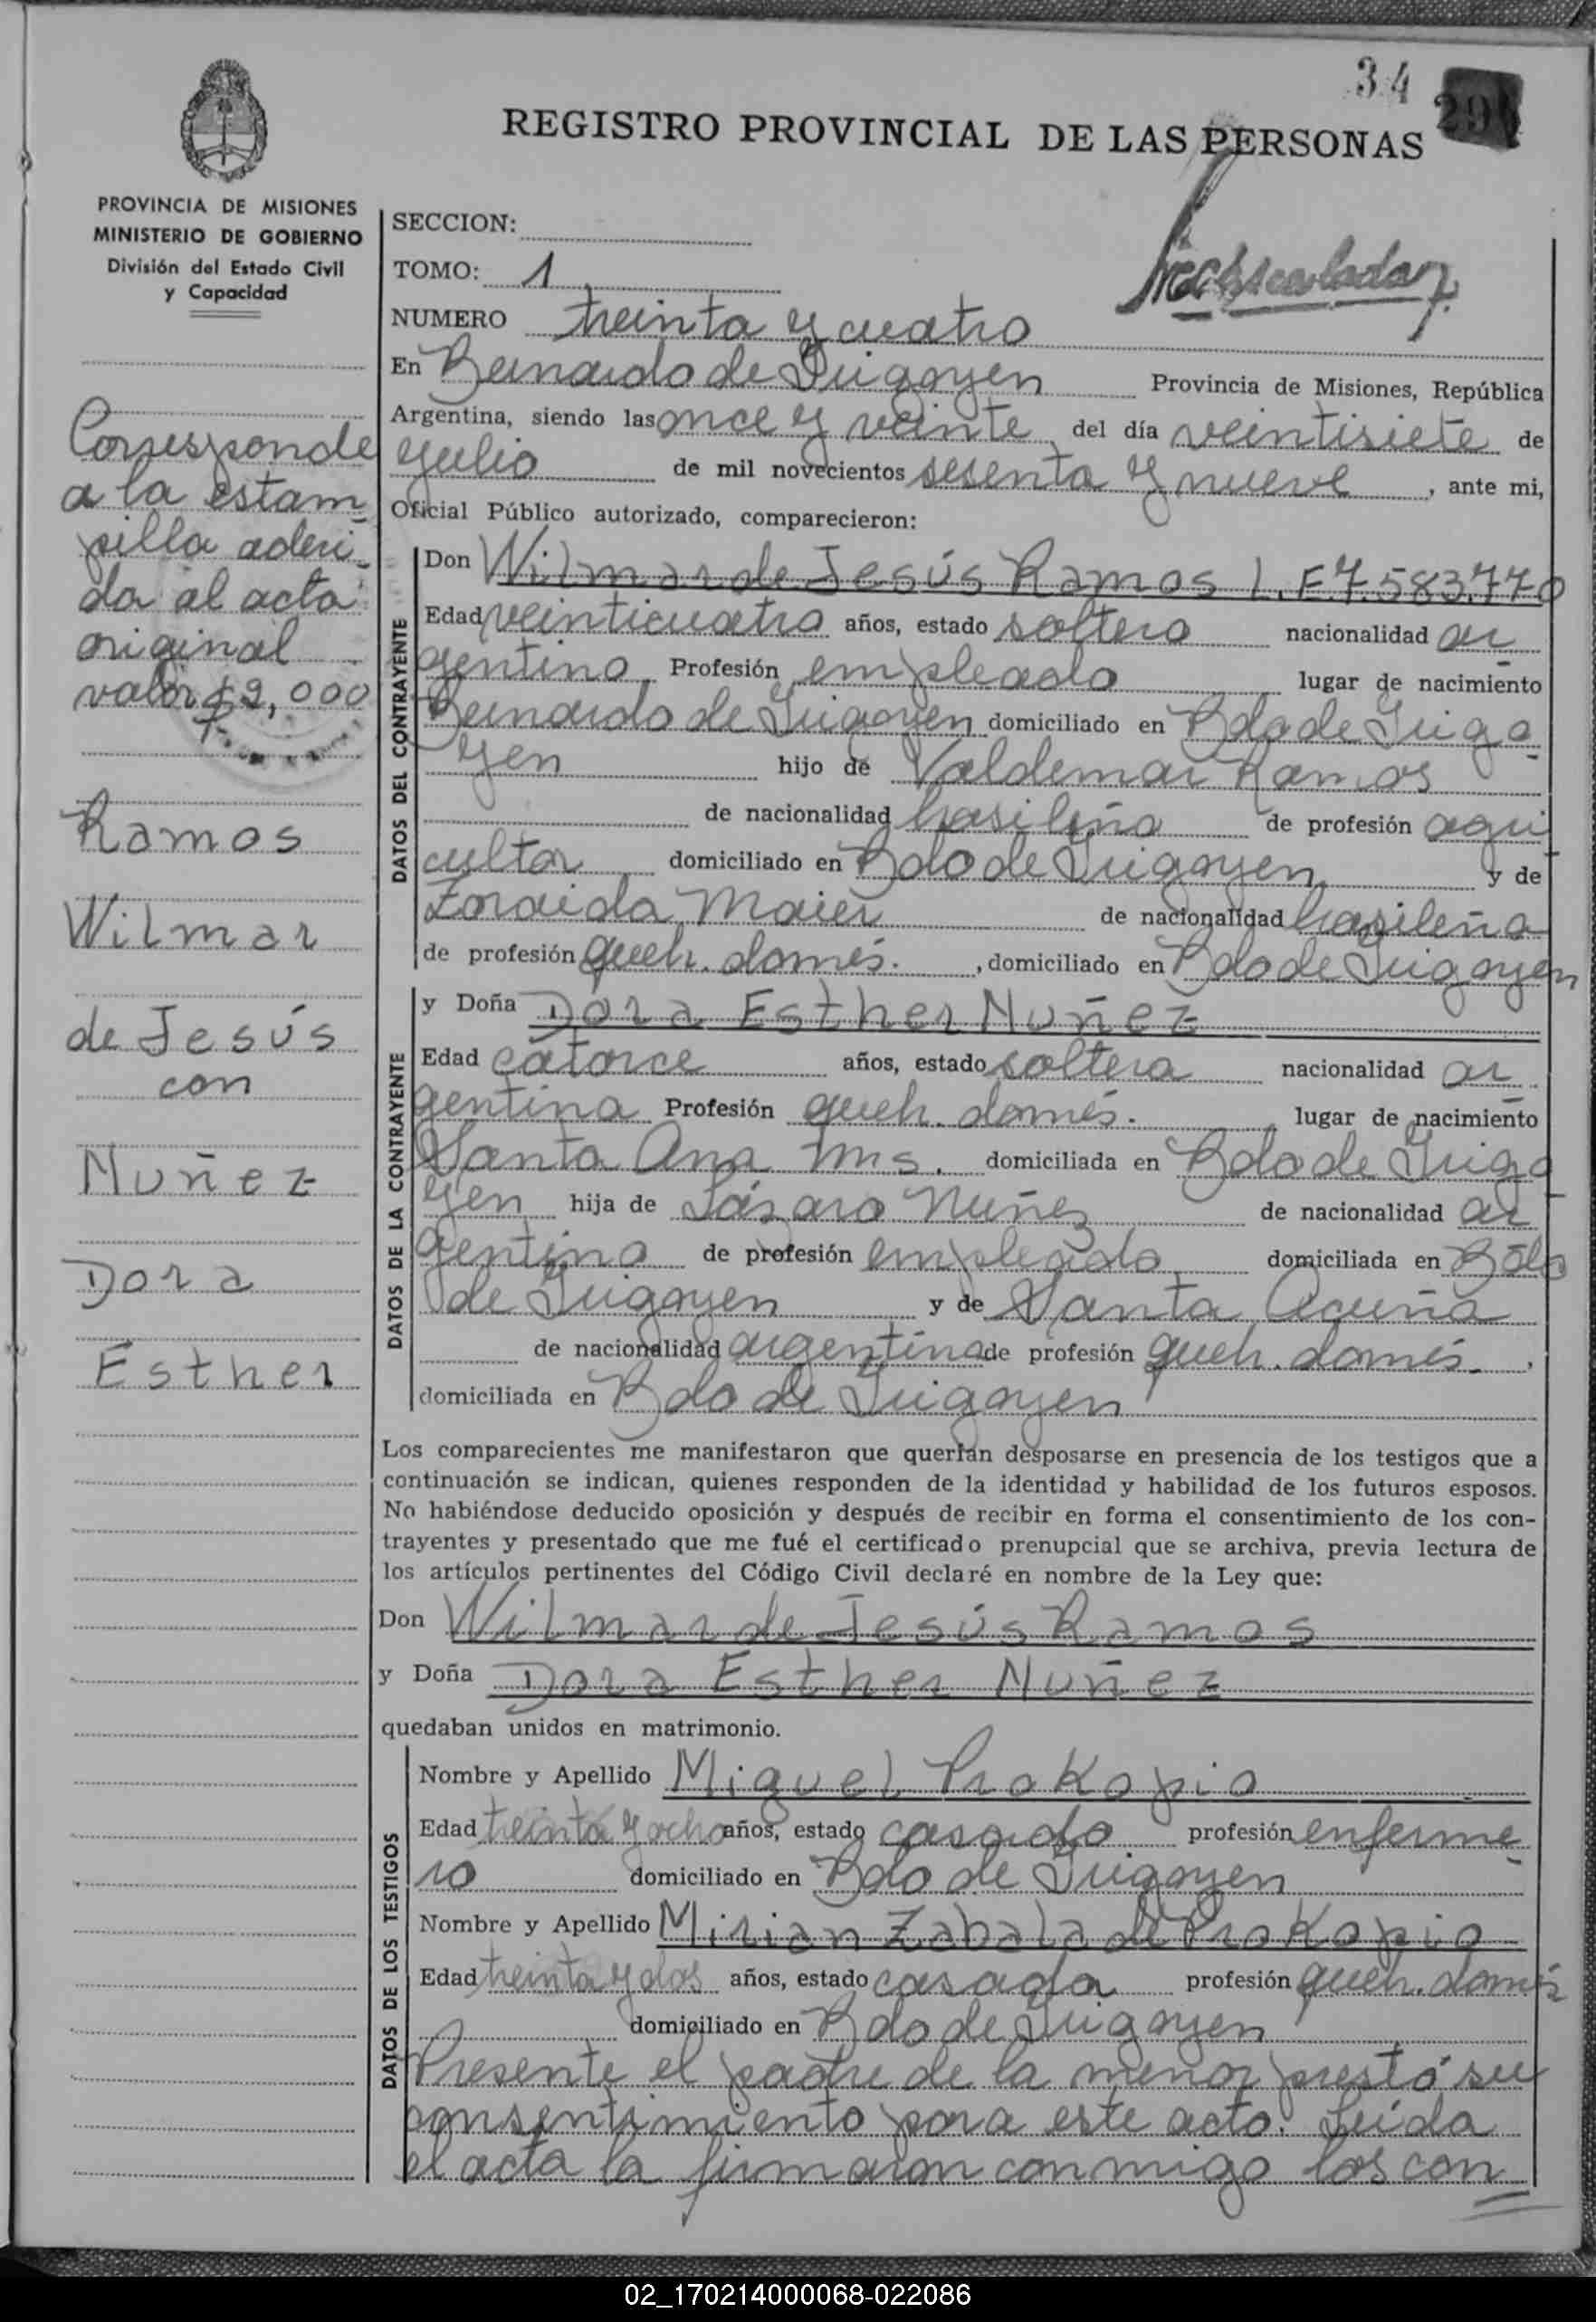 34
29
REGISTRO PROVINCIAL DE LAS PERSONAS
PROVINCIA DE MISIONES
MINISTERIO DE GOBIERNO
División del Estado Civil
y Capacidad
Corresponde
a la estam-
pilla aderi-
da al acta
original
valor $2,000
Ramos
Wilmar
de Jesús
con
Nuñez
Dora
Esther
SECCION:
TOMO: 1
NUMERO treinta y cuatro
En Bernardo de Irigoyen Provincia de Misiones, República
Argentina, siendo las once y veinte del día veintisiete de
julio de mil novecientos sesenta y nueve, ante mi,
Oficial Público autorizado, comparecieron:
DATOS DEL CONTRAYENTE
Don Wilmar de Jesús Ramos L.E 7.583.770
Edad veinticuatro años, estado soltero nacionalidad ar-
gentino, Profesión empleado lugar de nacimiento
Bernardo de Irigoyen domiciliado en Bdo de Irigo-
yen hijo de Valdemar Ramos
de nacionalidad brasileña de profesión agri
cultor domiciliado en Bdo de Irigoyen y de
Zoraida Maier de nacionalidad brasileña
de profesión queh. domés. , domiciliado en Bdo de Irigoyen
DATOS DE LA CONTRAYENTE
y Doña Dora Esther Nuñez
Edad catorce años, estado soltera nacionalidad ar-
gentina Profesión queh. domés. lugar de nacimiento
Santa Ana Mns. domiciliada en Bdo de Irigo
yen hija de Lázaro Nuñez de nacionalidad ar-
gentino de profesión empleado domiciliada en Bdo
de Irigoyen y de Santa Acuña
de nacionalidad argentina de profesión queh. domés. ,
domiciliada en Bdo de Irigoyen
Los comparecientes me manifestaron que querían desposarse en presencia de los testigos que a
continuación se indican, quienes responden de la identidad y habilidad de los futuros esposos.
No habiéndose deducido oposición y después de recibir en forma el consentimiento de los con-
trayentes y presentado que me fué el certificado prenupcial que se archiva, previa lectura de
los artículos pertinentes del Código Civil declaré en nombre de la Ley que:
Don Wilmar de Jesús Ramos
y Doña Dora Esther Nuñez
quedaban unidos en matrimonio.
DATOS DE LOS TESTIGOS
Nombre y Apellido Miguel Prokopio
Edad treinta y ocho años, estado casado profesión enferme-
ro domiciliado en Bdo de Irigoyen
Nombre y Apellido Mirian Zabala de Prokopio
Edad treinta y dos años, estado casada profesión queh. domés
domiciliado en Bdo de Irigoyen
Presente el padre de la menor prestó su
consentimiento para este acto. Leída
el acta la firmaron conmigo los con
02_170214000068-022086